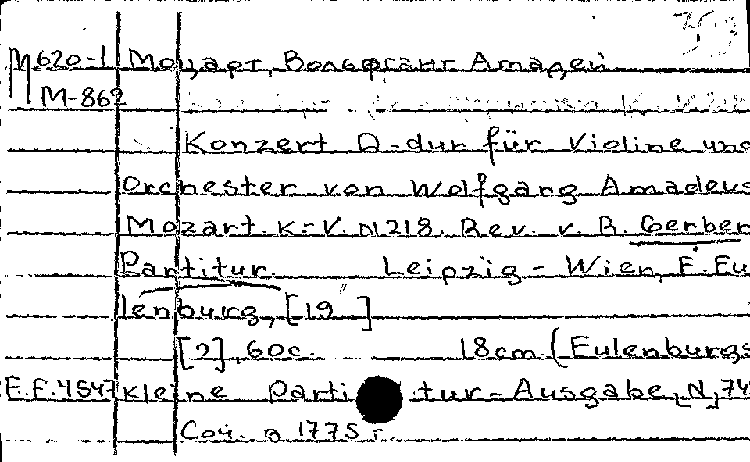 353
М620-1 Моцарт, Вольфганг Амадей
М-862
Konzert D-dur für Violine und
Orchester von Wolfgang Amadeus
Mozart. K.-V. N 218. Rev. v. R. Gerber
Partitur. Leipzig - Wien, E. Eu
lenburg, [19 "]
[2], 60 с. 18 cm (Eulenburgs
E.E. 4547 kleine Partitur-Ausgabe, N 74
Соч. в 1775 г.